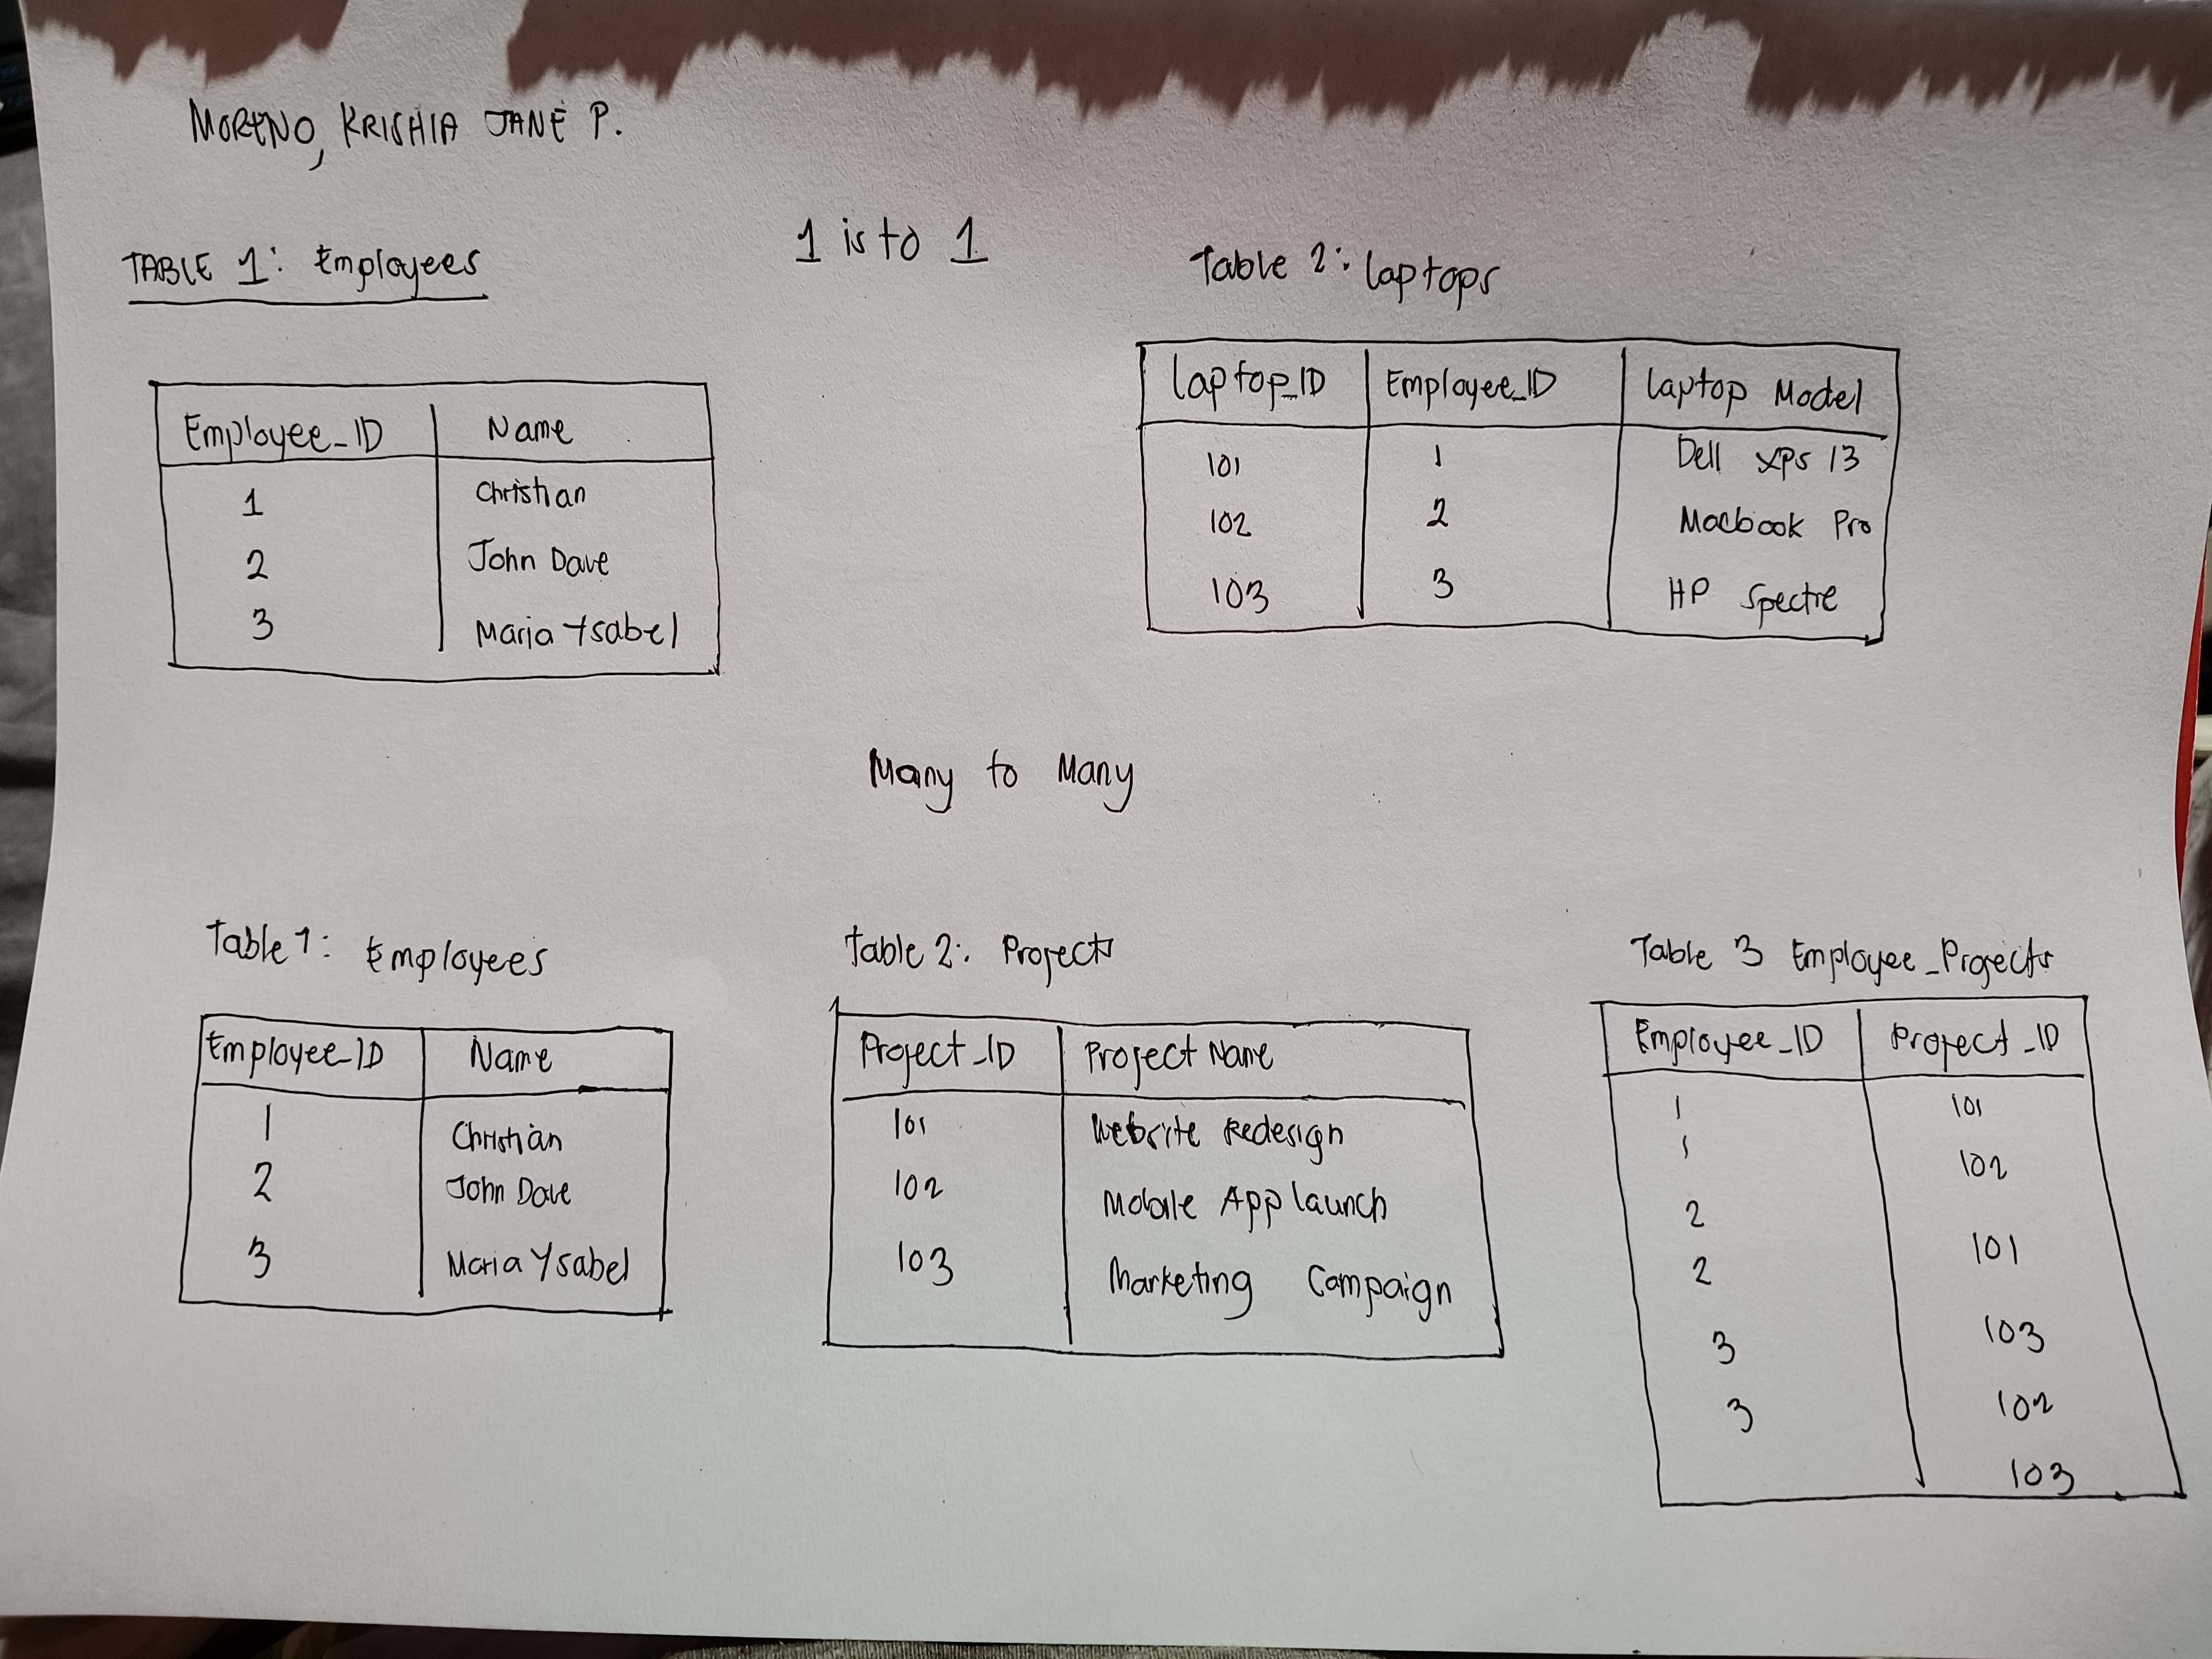 MORENO, KRISHIA JANE P.
1 is to 1
TABLE 1: Employees
Employee_ID Name
1 Christian
2 John Dave
3 Maria Ysabel
Table 2: laptops
laptop_ID Employee_ID laptop Model
101 1 Dell XPS 13
102 2 Macbook Pro
103 3 HP Spectre
Many to Many
Table 1: Employees
Employee_ID Name
1 Christian
2 John Dave
3 Maria Ysabel
Table 2: Projects
Project_ID Project Name
101 Website Redesign
102 Mobile App launch
103 Marketing Campaign
Table 3 Employee_Projects
Employee_ID Project_ID
1 101
1 102
2 101
2 103
3 102
3 103